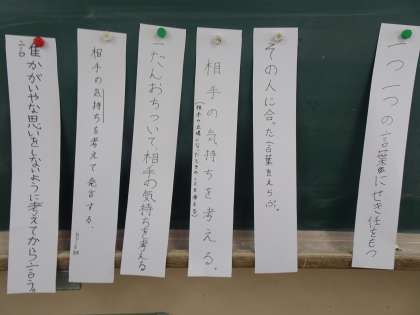 一つ一つの言葉にせき任をもつ
その人に合った言葉をえらぶ。
相手の気持ちを考える。
(相手の立場になったときのことを考える)
一だんおちついて、相手の気持ちを考える
相手の気持ちを考えて発言する。
誰かがいやな思いをしないように考えてから言う。